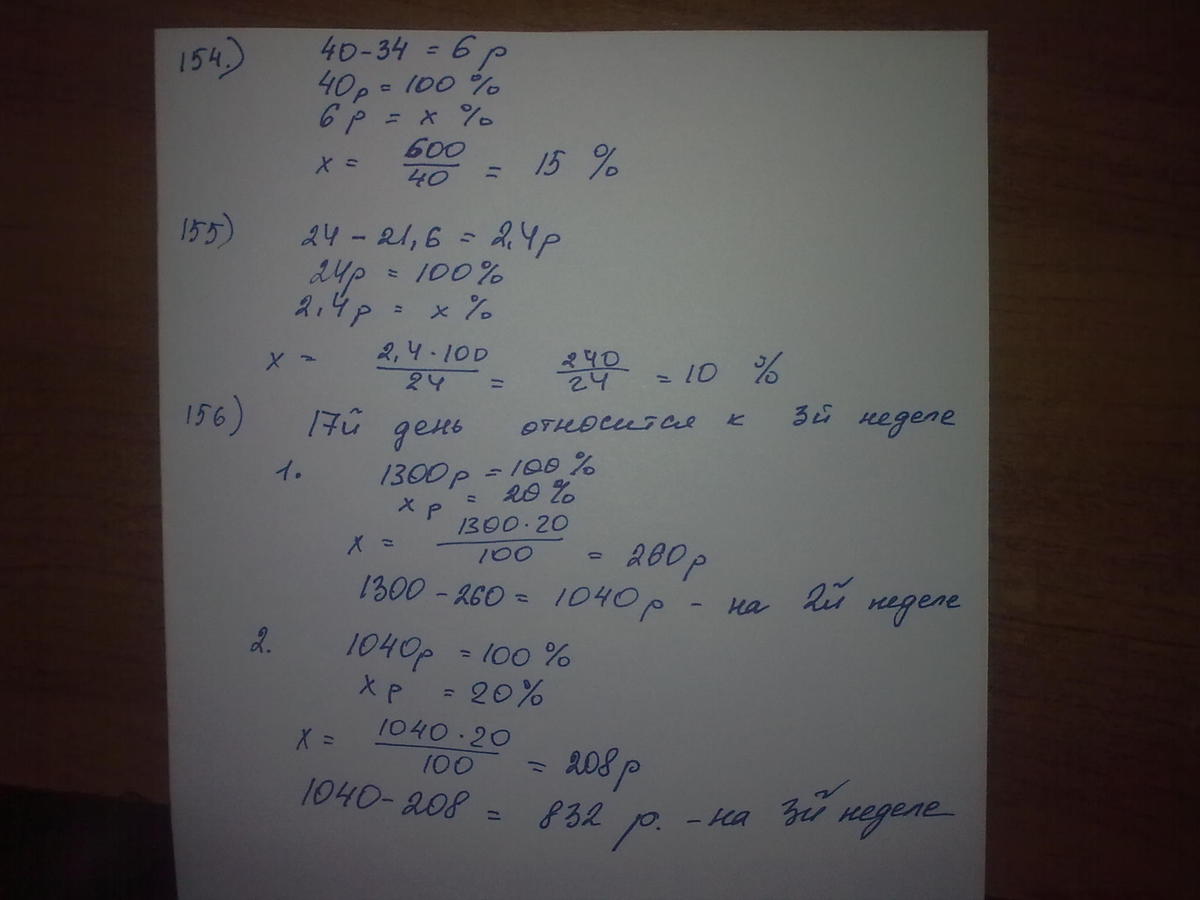 154.) 40-34 = 6 р
40р = 100 %
6 р = х %
х = 600/40 = 15 %
155) 24 - 21,6 = 2,4р
24р = 100%
2,4р = х %
х = 2,4·100/24 = 240/24 = 10 %
156) 17й день относится к 3й неделе
1. 1300р = 100%
х р = 20%
х = 1300·20/100 = 260р
1300 - 260 = 1040р - на 2й неделе
2. 1040р = 100%
х р = 20%
х = 1040·20/100 = 208р
1040 - 208 = 832 р. - на 3й неделе